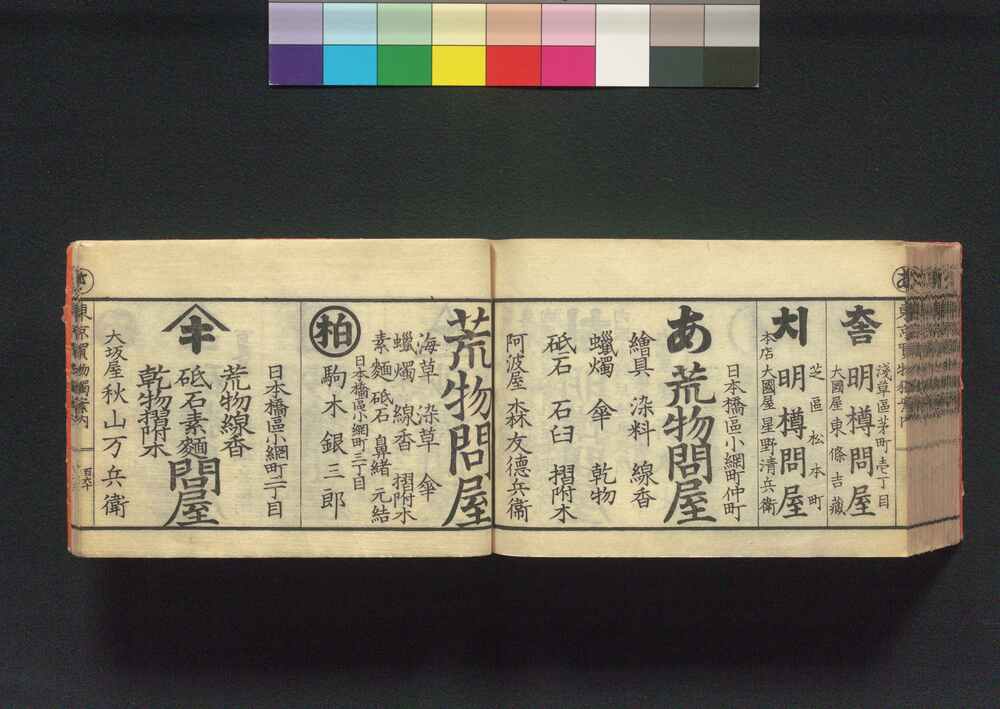 淺草區茅町壱丁目
明樽問屋
大國屋東條吉藏
芝區松本町
明樽問屋
本店大國屋星野清兵衛
日本橋區小網町仲町
あ
荒物問屋
繪具 染料 線香
蠟燭 傘 乾物
砥石 石臼 摺附木
阿波屋森友德兵衛
荒物問屋
海草 染草 傘
蠟燭 線香 摺附木
素麵 砥石 鼻緒 元結
日本橋區小網町三丁目
柏
駒木銀三郎
日本橋區小網町二丁目
荒物線香
砥石素麵
乾物摺附木
問屋
キ
大坂屋秋山万兵衛
東京買物獨案内